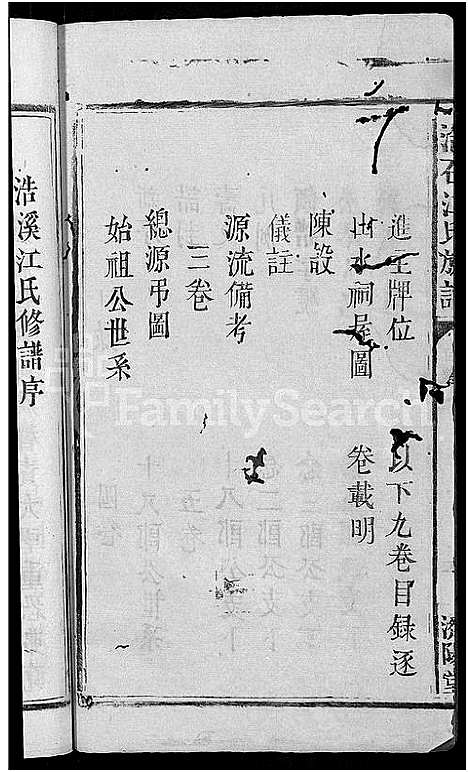 江氏族譜
濟陽堂
進主牌位
出水祠屋圖
以下九卷目录逐
卷載明
陳設
儀註
源流備考
三卷
總源弔圖
始祖公世系
浩溪江氏修譜序
FamilySearch